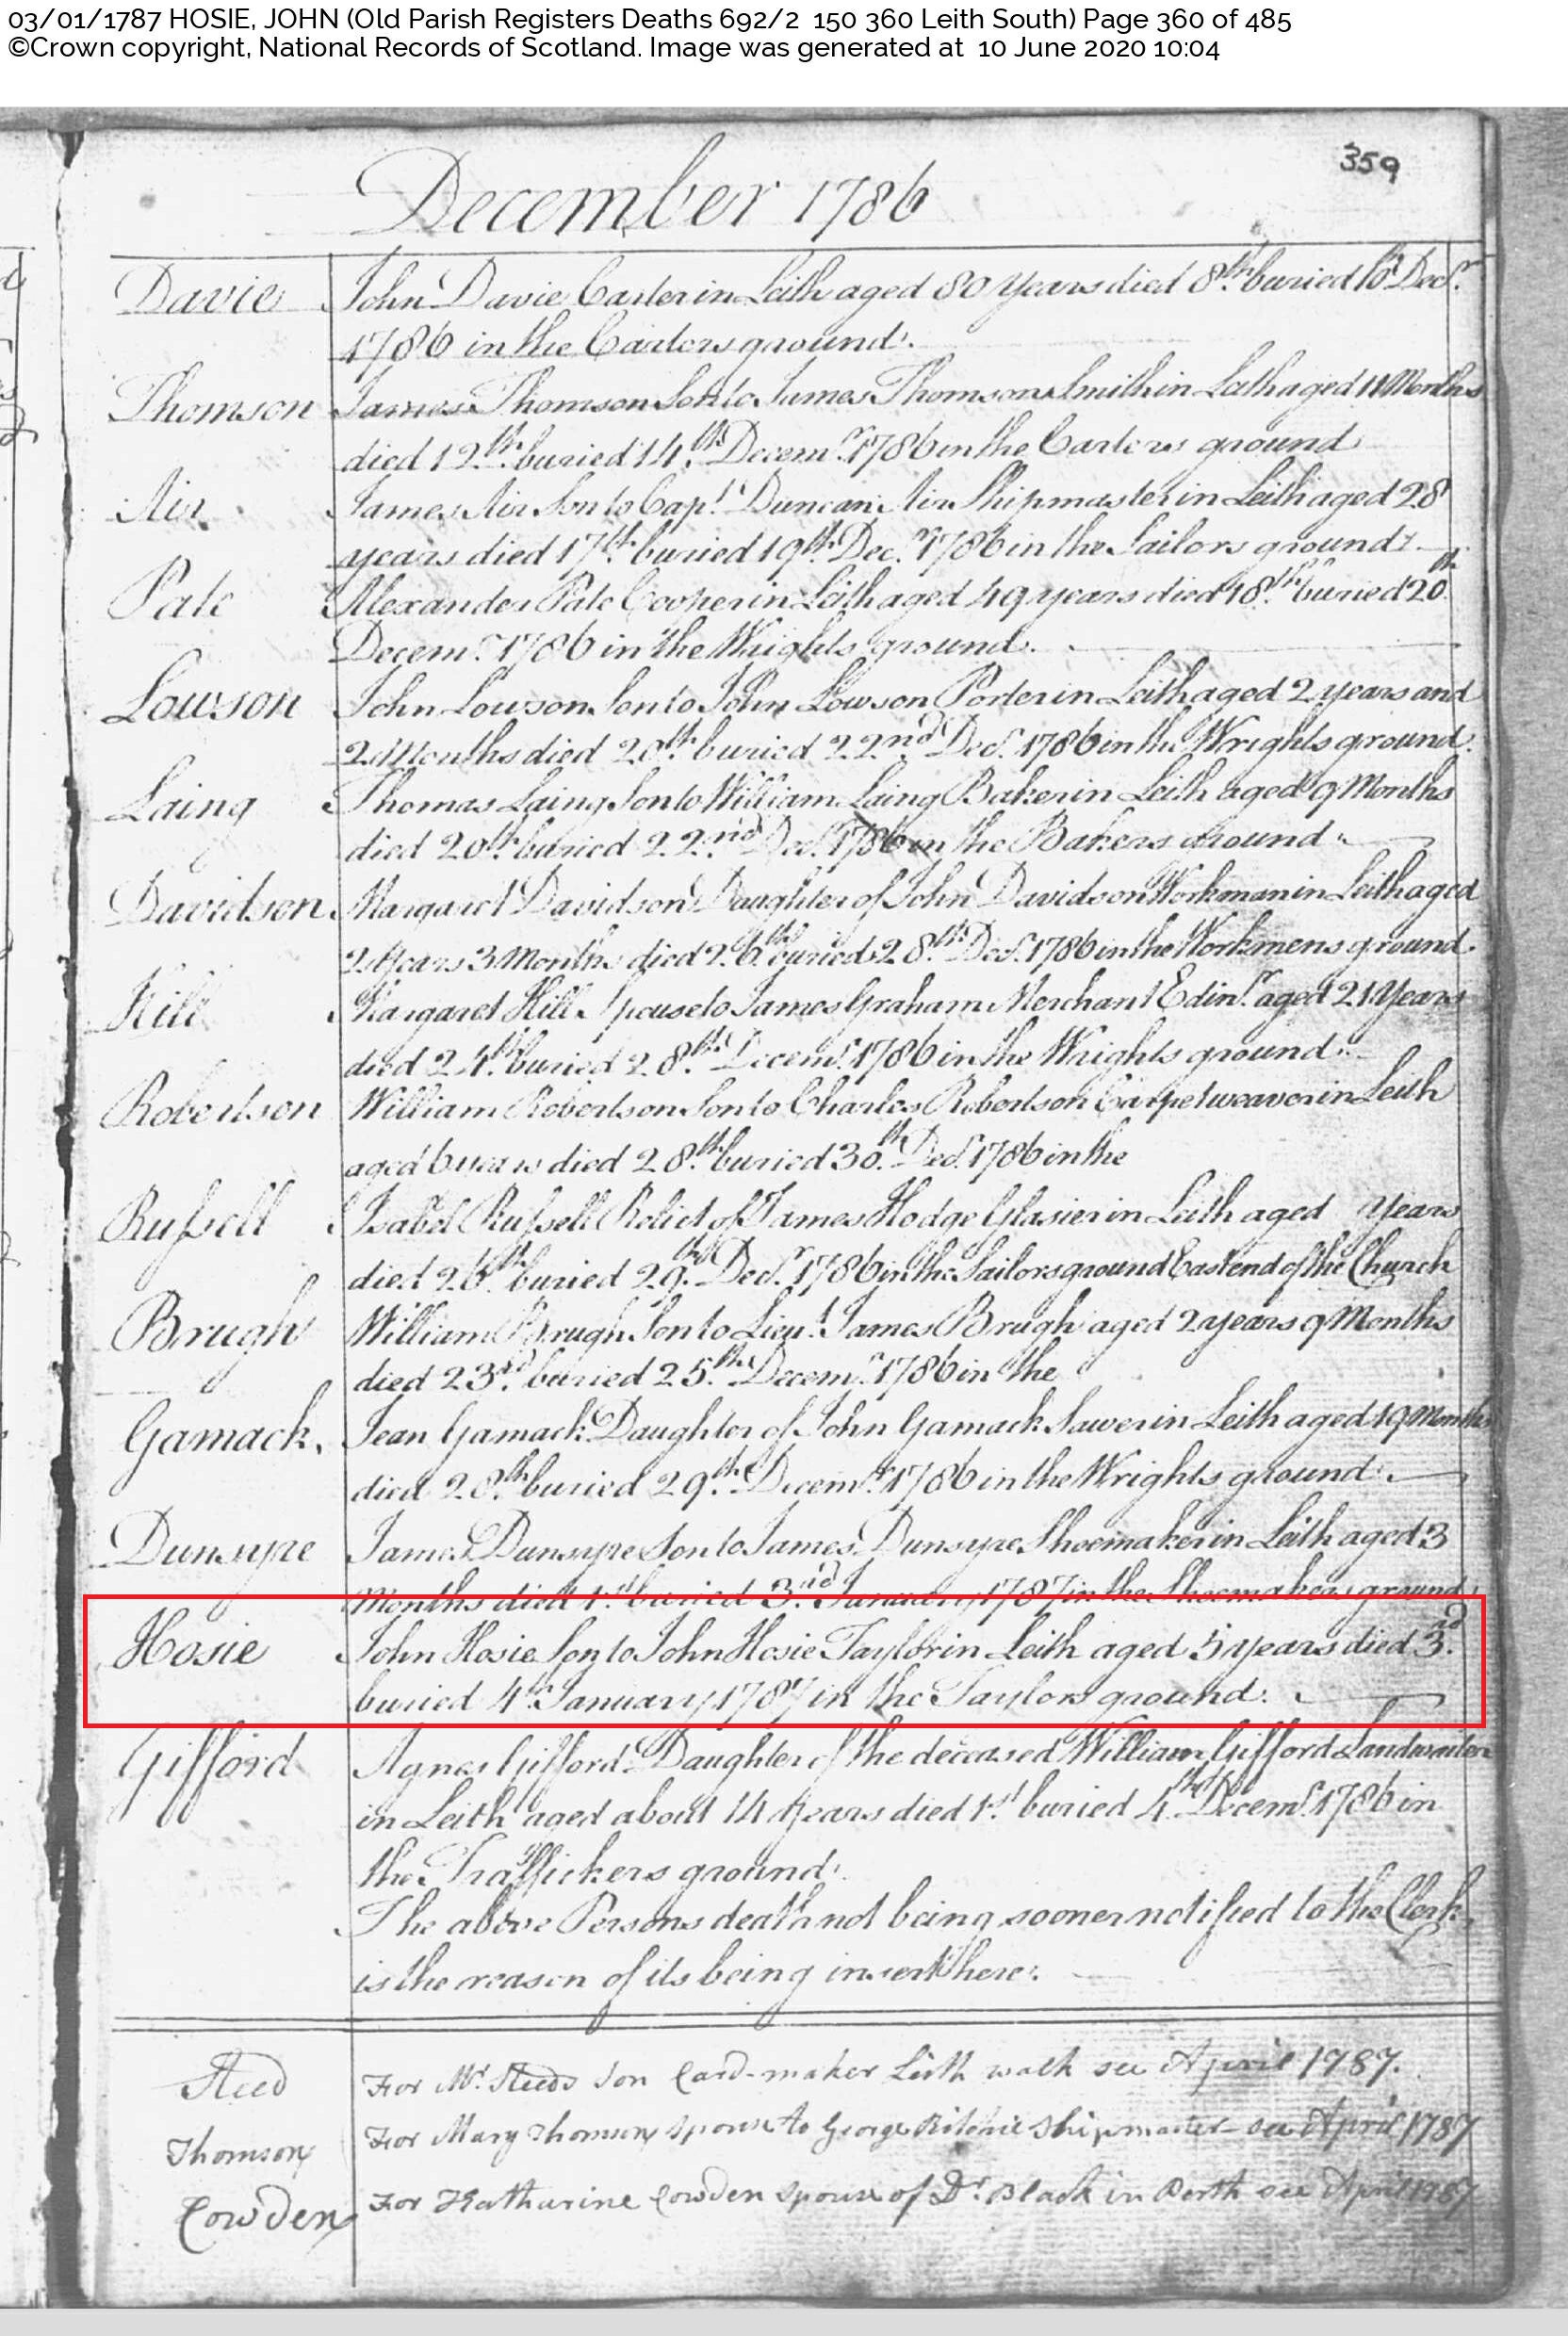 03/01/1787 HOSIE, JOHN (Old Parish Registers Deaths 692/2 150 360 Leith South) Page 360 of 485
©Crown copyright, National Records of Scotland. Image was generated at 10 June 2020 10:04
359
December 1786
Davie John Davie Carter in Leith aged 80 Years died 8th buried 10 Decr.
1786 in the Carters ground.
Thomson James Thomson Son to James Thomson Smith in Leith aged 11 Months
died 12th buried 14th Decemr. 1786 in the Carters ground
Air James Air Son to Capt. Duncan Air Shipmaster in Leith aged 28
years died 17th buried 19th Decr. 1786 in the Sailors ground
Pate Alexander Pate Cooper in Leith aged 49 years died 18th buried 20th
Decemr. 1786 in the Wrights ground.
Lowson John Lowson Son to John Lowson Porter in Leith aged 2 years and
2 Months died 20th buried 22nd Decr. 1786 in the Wrights ground.
Laing Thomas Laing Son to William Laing Baker in Leith aged 9 Months
died 20th buried 22nd Decr. 1786 in the Bakers ground
Davidson Margaret Davidson Daughter of John Davidson Workman in Leith aged
2 Years 3 Months died 26th buried 28th Decr. 1786 in the Workmens ground.
Hill Margaret Hill Spouse to James Graham Merchant Edinr. aged 21 Years
died 24th buried 28th Decemr. 1786 in the Wrights ground
Robertson William Robertson Son to Charles Robertson Carpet weaver in Leith
aged 6 years died 28th buried 30th Decr. 1786 in the
Russell Isabel Russell Relict of James Hodge Glasier in Leith aged Years
died 26th buried 29th Decr. 1786 in the Sailors ground East end of the Church
Brugh William Brugh Son to Lieut. James Brugh aged 2 years 9 Months
died 23rd buried 25th Decemr. 1786 in the
Gamack. Jean Gamack Daughter of John Gamack Sawer in Leith aged 19 Months
died 28th buried 29th Decemr. 1786 in the Wrights ground
Dunsyre James Dunsyre Son to James Dunsyre Shoemaker in Leith aged 3
Months died 1st buried 3rd January 1787 in the Shoemakers ground
Hosie John Hosie Son to John Hosie Taylor in Leith aged 5 years died 3rd
buried 4th January 1787 in the Taylors ground.
Gifford Agnes Gifford Daughter of the deceased William Gifford Landwaiter
in Leith aged about 14 Years died 1st buried 4th Decemr. 1786 in
the Traffickers ground
The above Persons death not being sooner notified to the Clerk
is the reason of its being insert here.
Steed For Mr. Steeds Son Card-maker Leith walk see April 1787.
Thomson For Mary Thomson spouse to George Ritchie Shipmaster - see April 1787
Cowden For Katharine Cowden spouse of Dr. Black in Perth see April 1787